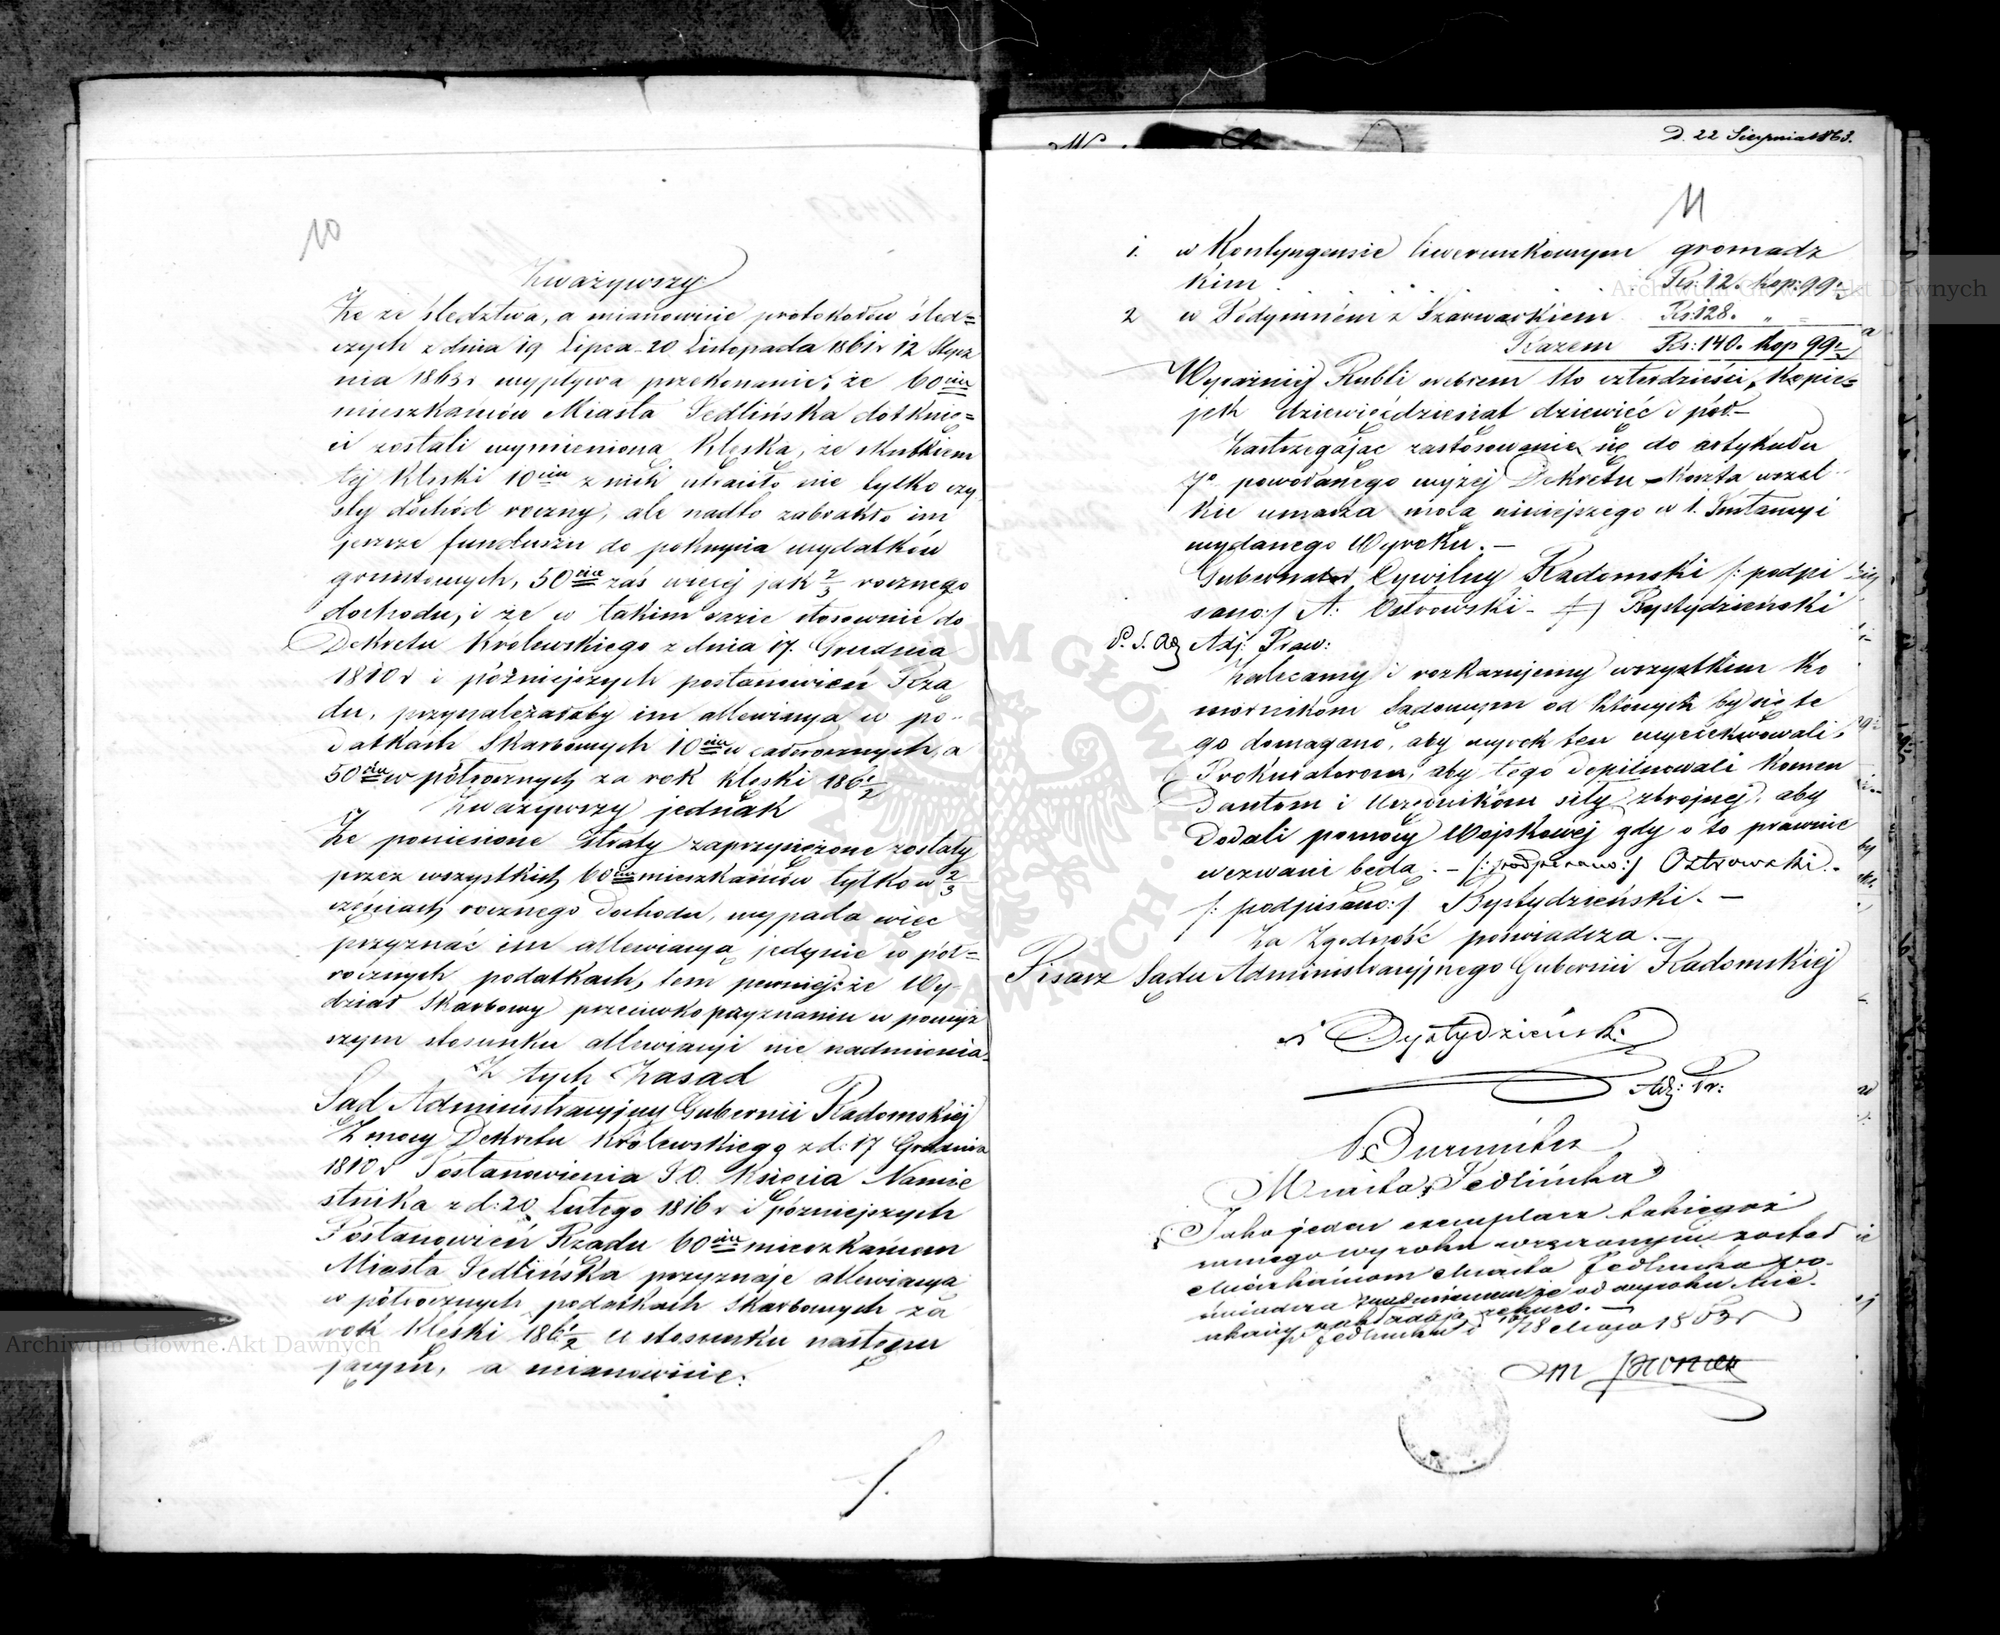 10
Zważywszy
Że ze śledztwa, a mianowicie protokołów śled=
czych z dnia 19 Lipca - 20 Listopada 1861 r 12 Stycz
nia 1863 r wypływa przekonanie, że 60ciu
mieszkańców Miasta Jedlińska dotknię=
ci zostali wymienioną klęską, że skutkiem
tej klęski 10ciu z nich utraciło nie tylko czy
sty dochód roczny, ale nadto zabrakło im
jeszcze funduszu do pokrycia wydatków
gruntowych, 50ciu zaś więcej jak 2/3 rocznego
dochodu, i że w takim razie stosownie do
Dekretu Królewskiego z dnia 17. Grudnia
1810 r i późniejszych postanowień Rzą
du, przynależałaby im allewiacya w po-
datkach Skarbowych 10ciu w całorocznych, a
50ciu w półrocznych za rok klęski 186 1/2
Zważywszy jednak
Że poniesione straty zaprzysiężone zostały
przez wszystkich 60ciu mieszkańców tylko w 2/3
częściach rocznego dochodu, wypada więc
przyznać im allewiacyą jedynie w pół=
rocznych podatkach, tem pewniej że Wy-
dział Skarbowy przeciwko przyznaniu w powyż
szym stosunku allewiacyi nie nadmienia
Z tych Zasad
Sąd Administracyjny Gubernii Radomskiej
Z mocy Dekretu Królewskiego z d: 17 Grudnia
1810 r Postanowienia J. O. Księcia Namie
stnika z d: 20 Lutego 1816 r i późniejszych
Postanowień Rządu 60ciu mieszkańcom
Miasta Jedlińska przyznaje allewiacyą
w półrocznych podatkach Skarbowych za
rok klęski 186 1/2 w stosunku następu
jącym, a mianowicie:
D. 22 Sierpnia 1863.
11
1. w Kontyngensie liwerunkowym gromadz
kim . . . . . . Rs: 12. kop: 99 1/2
2 w Podymném z Szarwarkiem Rs: 128. " =
Razem Rs: 140. kop 99 1/2
Wyraźniej Rubli srebrem sto czterdzieści, kopie=
jek dziewięćdziesiąt dziewięć i pół -
Zastrzegając zastosowanie się do artykułu
7o powołanego wyżej Dekretu - Koszta wszel
kie umarza mocą niniejszego w 1. Instancyi
wydanego Wyroku. -
Gubernator Cywilny Radomski /: podpi
sano:/ A: Ostrowski - Bystydzieński
Adj: Praw:
Zalecamy i rozkazujemy wszystkim Ko
mornikom Sądowym od których by się te
go domagano, aby wyrok ten wyexekwowali,
Prokuratorom, aby tego dopilnowali Komen
dantom i Urzędnikom siły zbrojnej, aby
dodali pomocy Wojskowej gdy o to prawnie
wezwani będą. - /: podpisano:/ Ostrowski. -
/: podpisano:/ Bystydzieński. -
Za Zgodność poświadcza. -
Pisarz Sądu Administracyjnego Gubernii Radomskiej
Bystydzieński
Adj: Pr:
Burmistrz
Miasta Jedlińska
Jako jeden exemplarz takiegoż
samego wyroku wręczonym został
Mieszkańcom Miasta Jedlińska po-
świadcza nadmieniając że od wyroku
w Jedlińsku d 18 Maja 1863 r
Archiwum Główne Akt Dawnych
Archiwum Główne Akt Dawnych
ARCHIWUM GŁÓWNE AKT DAWNYCH